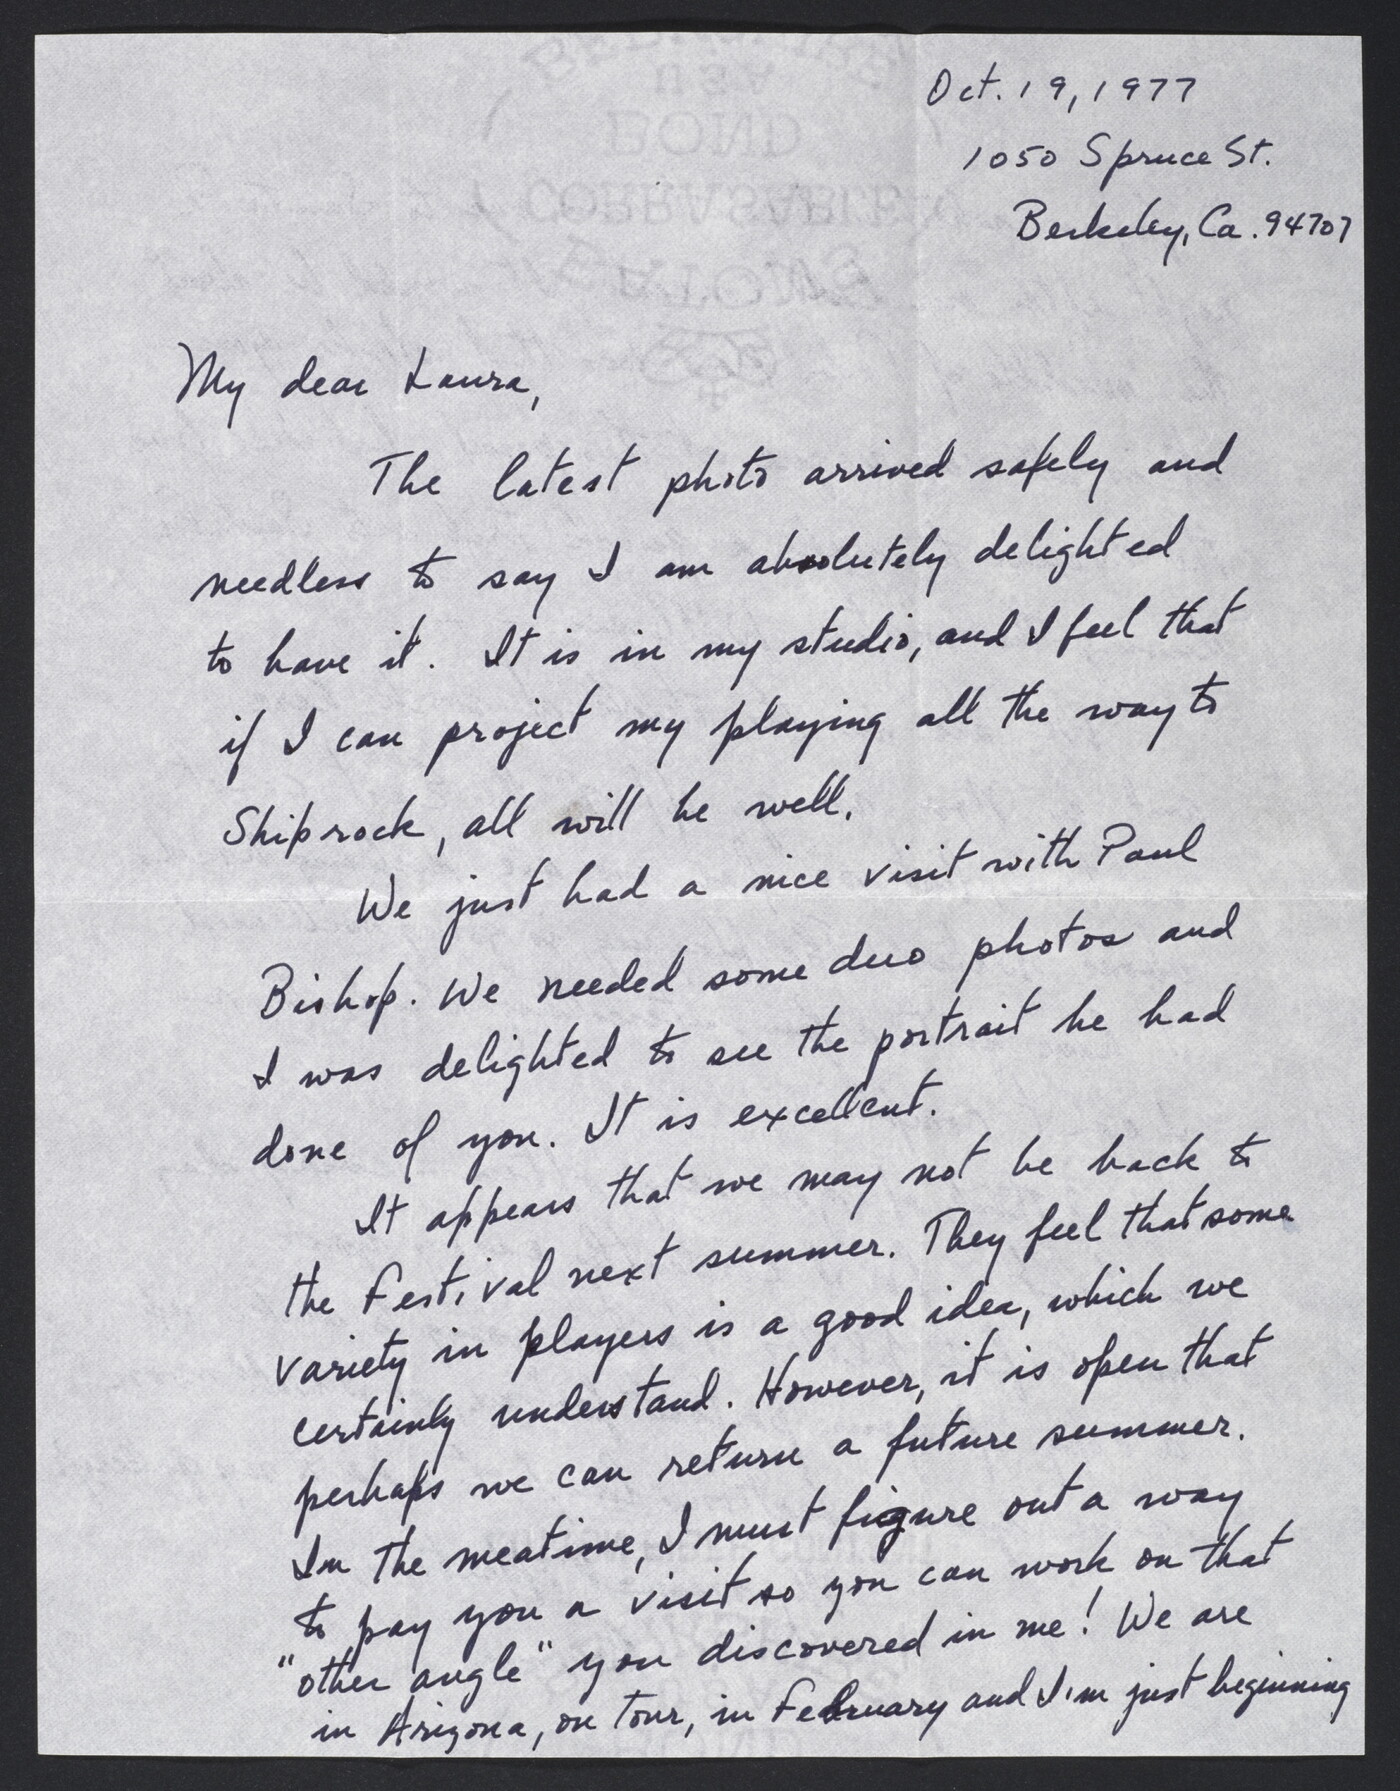 Oct. 19, 1977
1050 Spruce St.
Berkeley, Ca. 94707
My dear Laura,
The latest photo arrived safely and
needless to say I am absolutely delighted
to have it. It is in my studio, and I feel that
if I can project my playing all the way to
Shiprock, all will be well.
We just had a nice visit with Paul
Bishop. We needed some duo photos and
I was delighted to see the portrait he had
done of you. It is excellent.
It appears that we may not be back to
the Festival next summer. They feel that some
variety in players is a good idea, which we
certainly understand. However, it is open that
perhaps we can return a future summer.
In the meatime, I must figure out a way
to pay you a visit so you can work on that
"other angle" you discovered in me! We are
in Arizona, on tour, in February and I'm just beginning